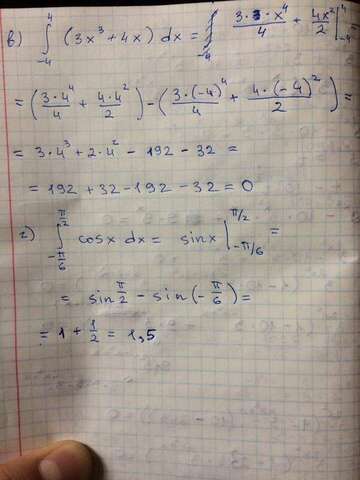 в) ∫₋₄⁴ (3x³ + 4x) dx = 3·x⁴/4 + 4x²/2 |₋₄⁴ =
= (3·4⁴/4 + 4·4²/2) - (3·(-4)⁴/4 + 4·(-4)²/2) =
= 3·4³ + 2·4² - 192 - 32 =
= 192 + 32 - 192 - 32 = 0
г) ∫_{-π/6}^{π/2} cosx dx = sinx |_{-π/6}^{π/2} =
= sin π/2 - sin(-π/6) =
= 1 + 1/2 = 1,5